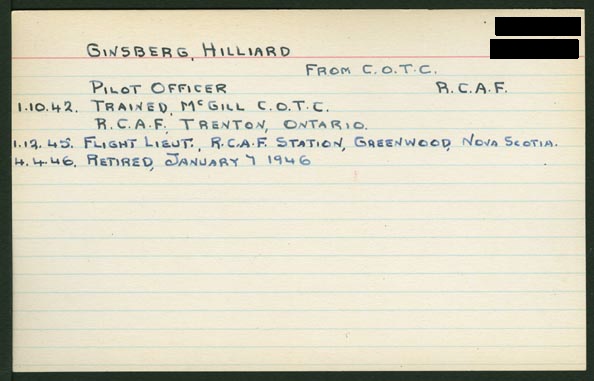 GINSBERG, HILLIARD
FROM C.O.T.C.
PILOT OFFICER R.C.A.F.
1.10.42. TRAINED, McGILL C.O.T.C.
R.C.A.F. TRENTON, ONTARIO.
1.12.45. FLIGHT LIEUT., R.C.A.F. STATION, GREENWOOD, NOVA SCOTIA.
4.4.46. RETIRED, JANUARY 7 1946